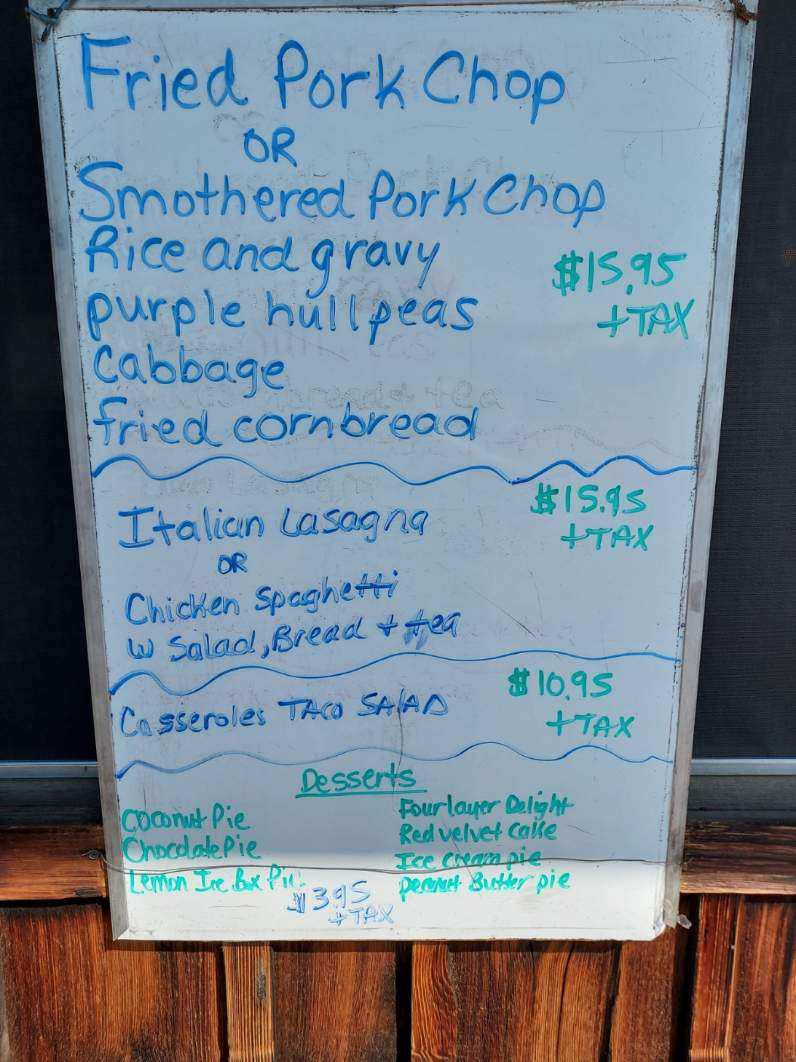 Fried Pork Chop
OR
Smothered Pork Chop
Rice and gravy
$15.95
purple hull peas
+TAX
Cabbage
fried cornbread
$15.95
Italian Lasagna
+TAX
OR
Chicken Spaghetti
w Salad, Bread + tea
$10.95
Casseroles TACO SALAD
+TAX
Desserts
Coconut Pie
Chocolate Pie
Lemon Ice Box Pie
Four layer Delight
Red velvet Cake
Ice cream pie
Peanut Butter pie
$3.95
+TAX